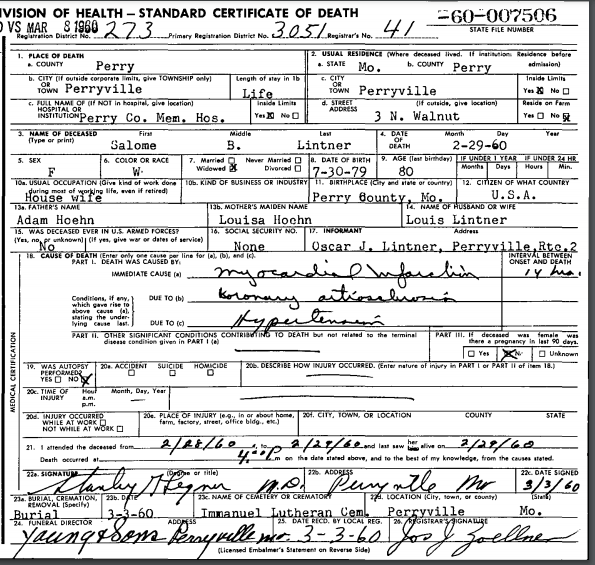 VISION OF HEALTH—STANDARD CERTIFICATE OF DEATH -60-007506
VS MAR 8 1960 Registration District No. 273 Primary Registration District No. 3051 Registrar's No. 41 STATE FILE NUMBER
1. PLACE OF DEATH 2. USUAL RESIDENCE (Where deceased lived. If institution: Residence before admission)
a. COUNTY Perry a. STATE Mo. b. COUNTY Perry
b. CITY (If outside corporate limits, give TOWNSHIP only) OR TOWN Perryville Length of stay in 1b Life c. CITY OR TOWN Perryville Inside Limits Yes ☒ No ☐
c. FULL NAME OF (If NOT in hospital, give location) HOSPITAL OR INSTITUTION Perry Co. Mem. Hos. Inside Limits Yes ☒ No ☐ d. STREET ADDRESS (If outside, give location) 3 N. Walnut Reside on Farm Yes ☐ No ☒
3. NAME OF DECEASED (Type or print) First Middle Last 4. DATE OF DEATH Month Day Year
Salome B. Lintner 2-29-60
5. SEX 6. COLOR OR RACE 7. Married ☐ Never Married ☐ Widowed ☒ Divorced ☐ 8. DATE OF BIRTH 9. AGE (last birthday) IF UNDER 1 YEAR Months Days IF UNDER 24 HR Hours Min.
F W. 7-30-79 80
10a. USUAL OCCUPATION (Give kind of work done during most of working life, even if retired) 10b. KIND OF BUSINESS OR INDUSTRY 11. BIRTHPLACE (City and state or country) 12. CITIZEN OF WHAT COUNTRY
House wife Perry County, Mo. U.S.A.
13a. FATHER'S NAME 13b. MOTHER'S MAIDEN NAME 14. NAME OF HUSBAND OR WIFE
Adam Hoehn Louisa Hoehn Louis Lintner
15. WAS DECEASED EVER IN U.S. ARMED FORCES? (Yes, no, or unknown) (If yes, give war or dates of service) 16. SOCIAL SECURITY NO. 17. INFORMANT Address
No None Oscar J. Lintner, Perryville, Rte.2
18. CAUSE OF DEATH (Enter only one cause per line for (a), (b), and (c). INTERVAL BETWEEN ONSET AND DEATH
PART I. DEATH WAS CAUSED BY:
IMMEDIATE CAUSE (a) Myocardial Infarction 14 hrs.
Conditions, if any, which gave rise to above cause (a), stating the underlying cause last. DUE TO (b) Koronary
DUE TO (c) Hypertension
PART II. OTHER SIGNIFICANT CONDITIONS CONTRIBUTING TO DEATH but not related to the terminal disease condition given in PART I (a) PART III. If deceased was female was there a pregnancy in last 90 days. ☐ Yes ☒ No ☐ Unknown
19. WAS AUTOPSY PERFORMED? YES ☐ NO ☒ 20a. ACCIDENT ☐ SUICIDE ☐ HOMICIDE ☐ 20b. DESCRIBE HOW INJURY OCCURRED. (Enter nature of injury in PART I or PART II of item 18.)
20c. TIME OF INJURY Hour a.m. p.m. Month, Day, Year
20d. INJURY OCCURRED WHILE AT WORK ☐ NOT WHILE AT WORK ☐ 20e. PLACE OF INJURY (e.g., in or about home, farm, factory, street, office bldg., etc.) 20f. CITY, TOWN, OR LOCATION COUNTY STATE
21. I attended the deceased from 2/28/60, to 2/29/60 and last saw her alive on 2/29/60
Death occurred at on the date stated above, and to the best of my knowledge, from the causes stated.
22a. SIGNATURE (Degree or title) 22b. ADDRESS 22c. DATE SIGNED
Stanley M.D. Perryville Mo 3/3/60
23a. BURIAL, CREMATION, REMOVAL (Specify) 23b. DATE 23c. NAME OF CEMETERY OR CREMATORY 23d. LOCATION (City, town, or county) (State)
Burial 3-3-60 Immanuel Lutheran Cem. Perryville Mo.
24. FUNERAL DIRECTOR ADDRESS 25. DATE RECD. BY LOCAL REG. 26. REGISTRAR'S SIGNATURE
Young & Sons Perryville Mo. 3-3-60 Jos J Zoellner
(Licensed Embalmer's Statement on Reverse Side)
MEDICAL CERTIFICATION